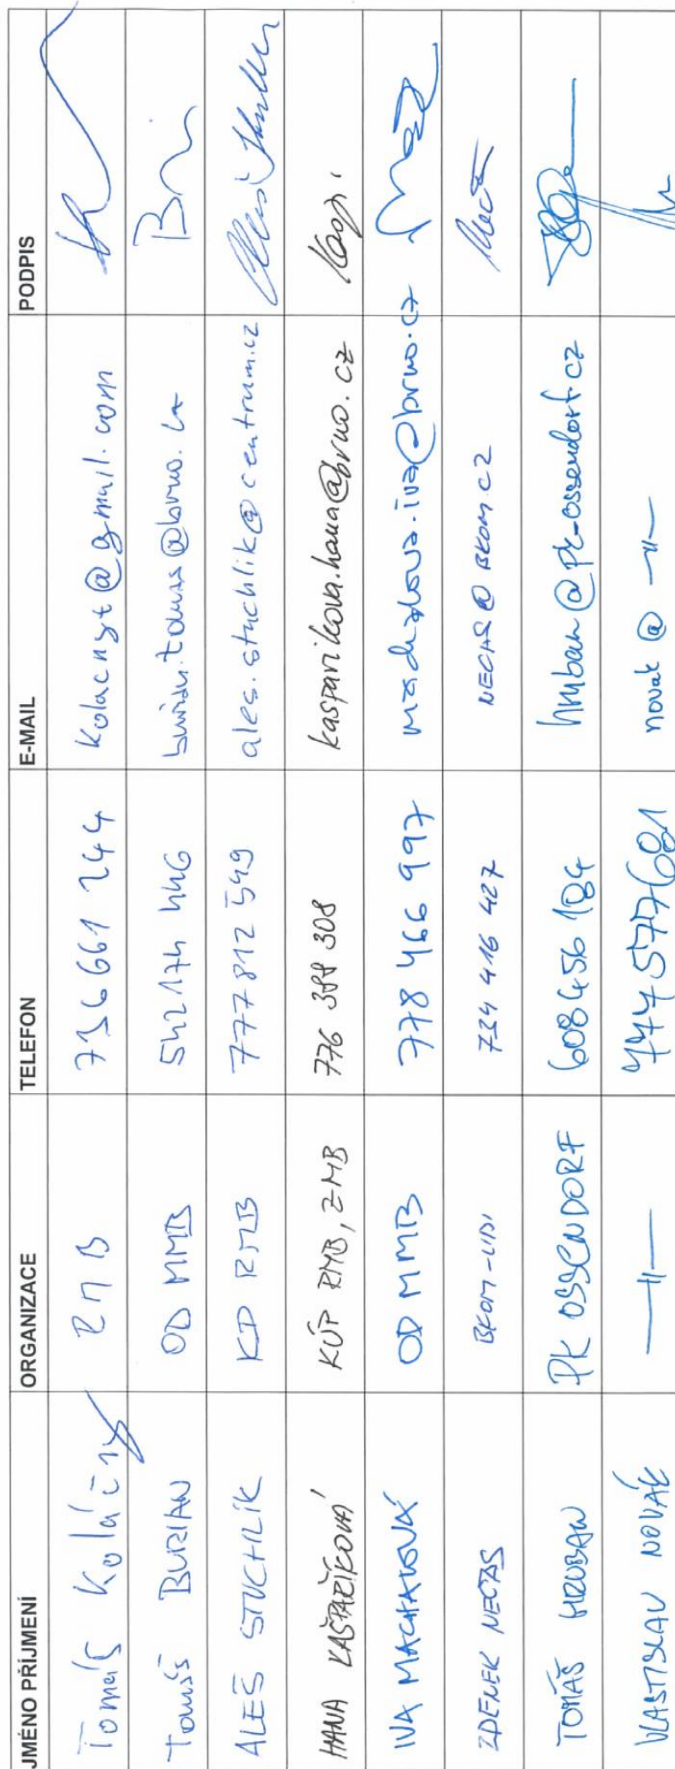 JMÉNO PŘÍJMENÍ ORGANIZACE TELEFON E-MAIL PODPIS
Tomáš Koláčný RMB 736 661 244 kolacnyt@gmail.com
Tomáš BURIAN OD MMB 542 174 446 burian.tomas@brno.cz
ALEŠ STUCHLÍK KD RMB 777 812 549 ales.stuchlik@centrum.cz
HANA KAŠPAŘÍKOVÁ KÚP RMB, ZMB 776 308 kasparikova.hana@brno.cz
IVA MACHALOVÁ OD MMB 778 466 997 machalova.iva@brno.cz
ZDENEK NEČAS BKOM-UDI 734 416 427 NECAS@BKOM.CZ
TOMÁŠ HRUBAN PK OSSENDORF 608 456 184 hruban@pk-ossendorf.cz
VLASTISLAV NOVÁK —〃— 577 681 novak@ —〃—